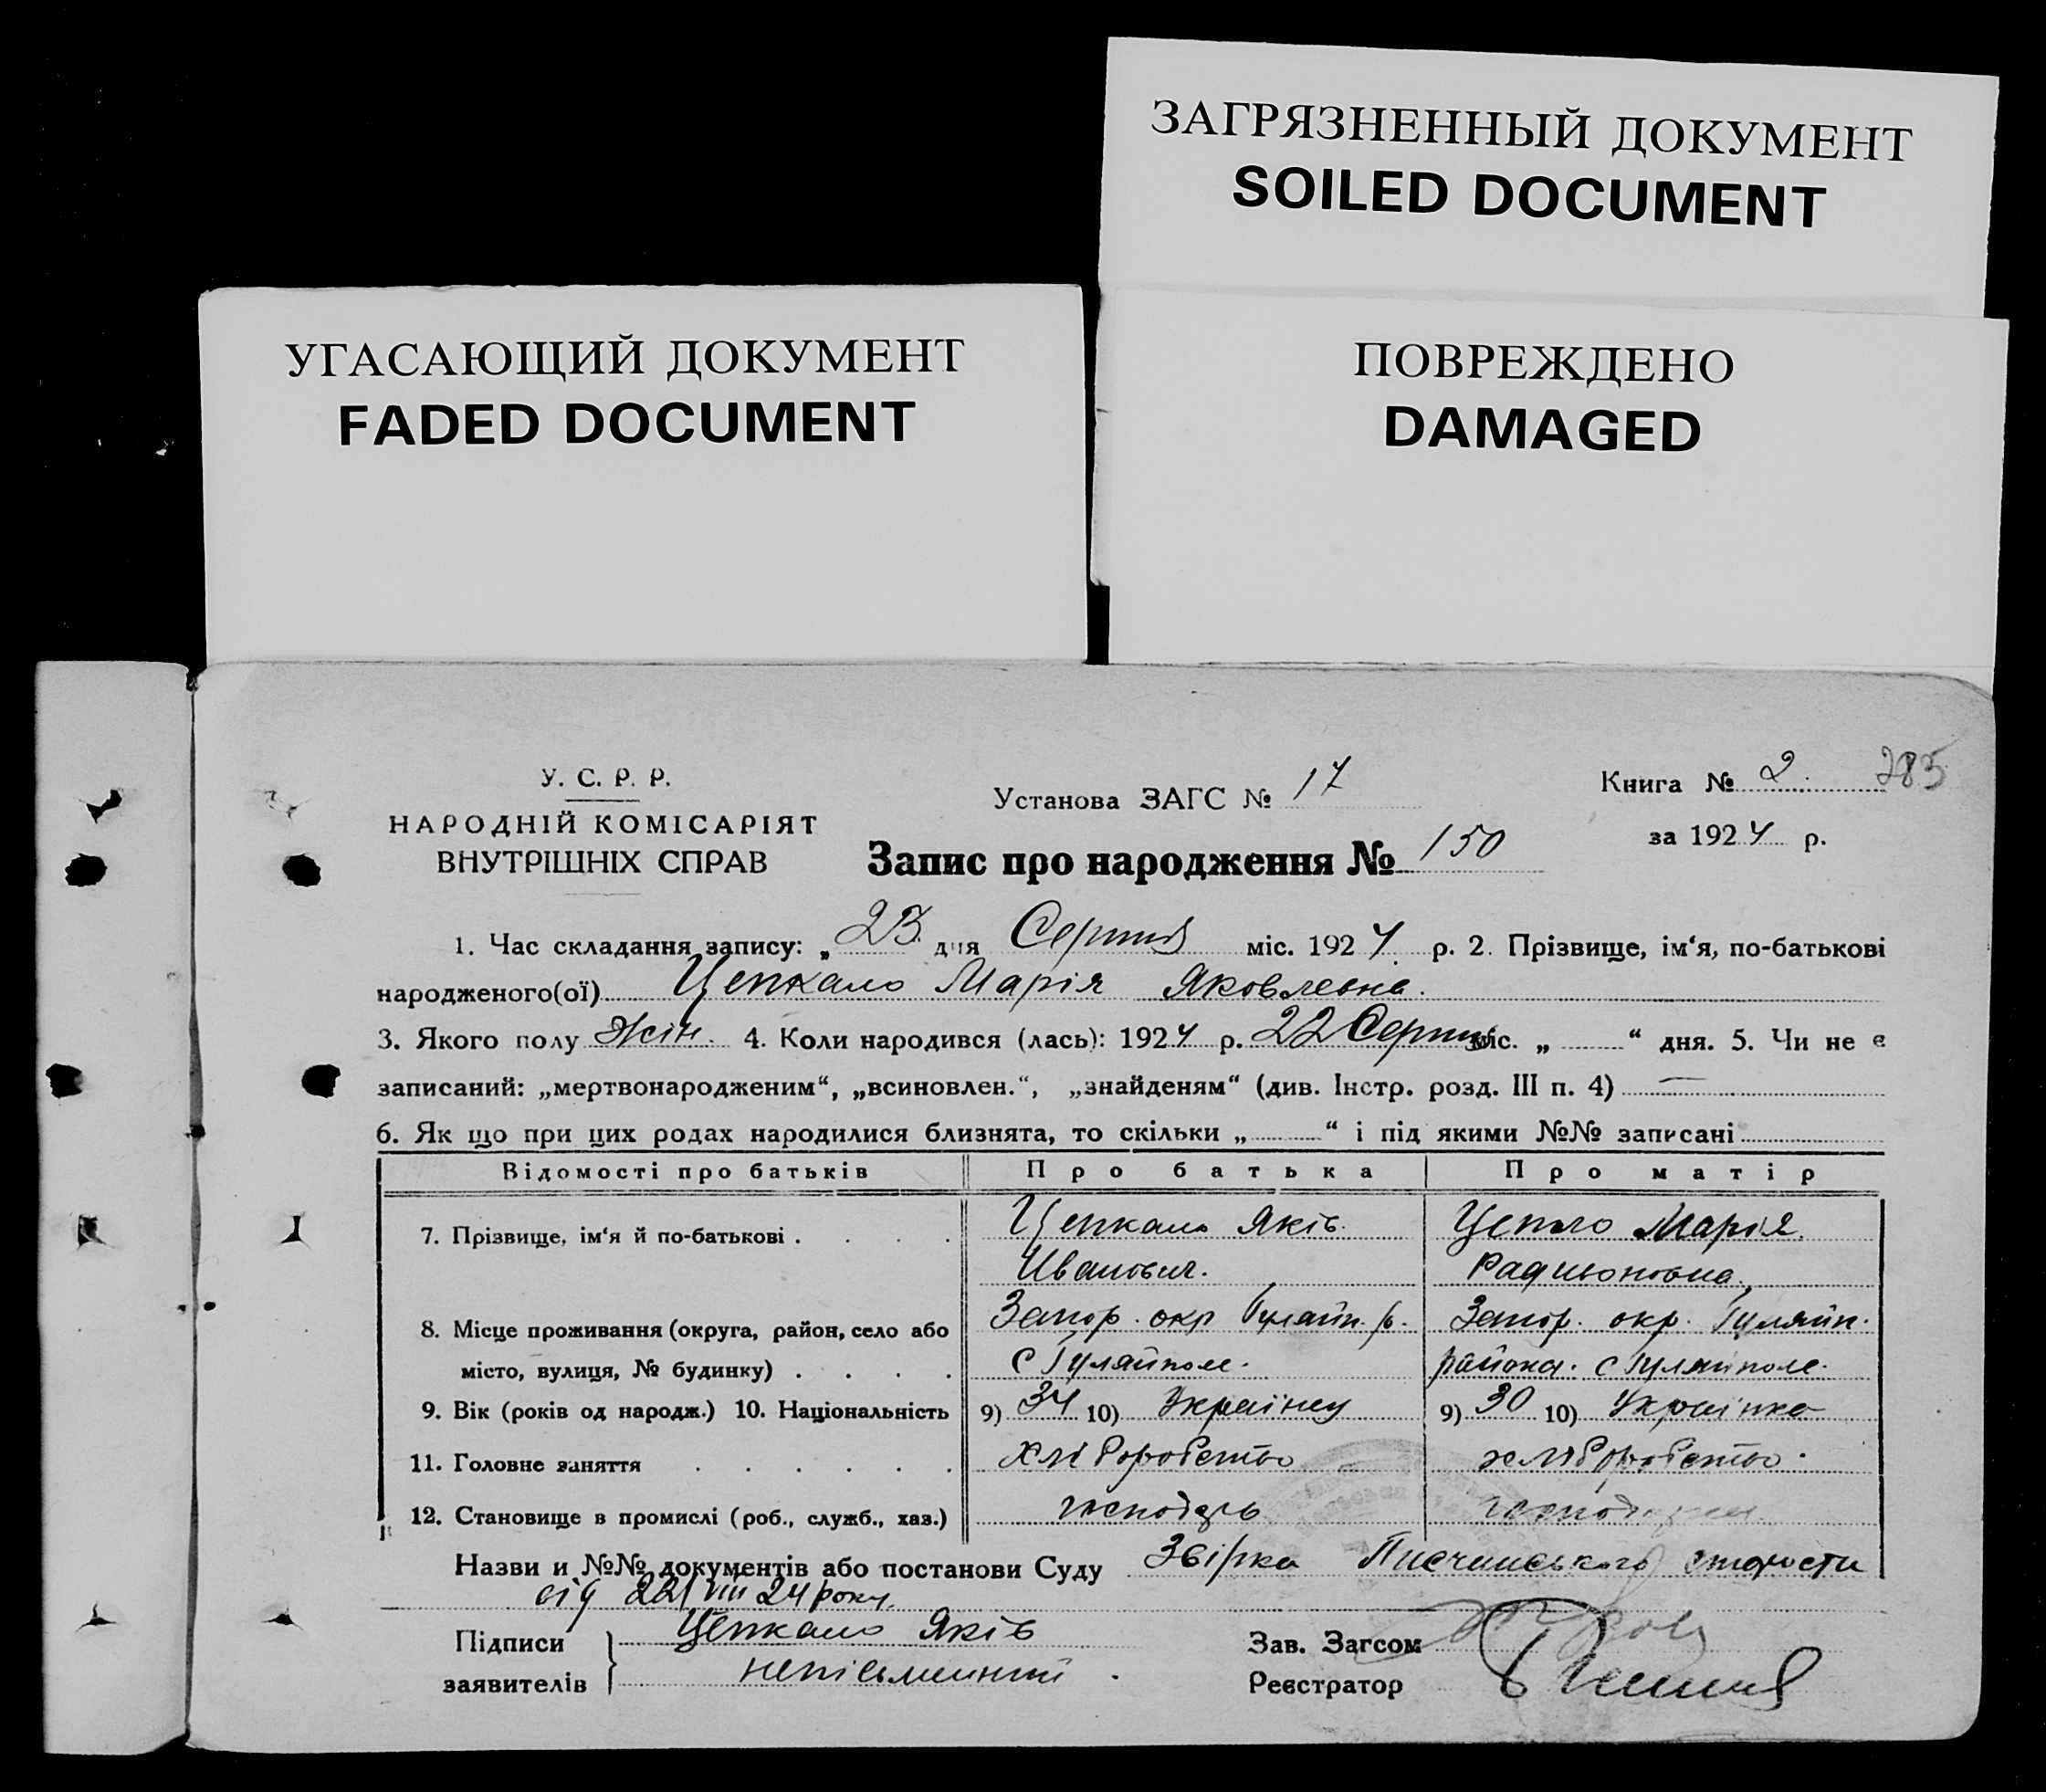 ЗАГРЯЗНЕННЫЙ ДОКУМЕНТ
SOILED DOCUMENT
УГАСАЮЩИЙ ДОКУМЕНТ
FADED DOCUMENT
ПОВРЕЖДЕНО
DAMAGED
У. С. Р. Р.
НАРОДНІЙ КОМІСАРІЯТ
ВНУТРІШНІХ СПРАВ
Установа ЗАГС № 17
Запис про народження № 150
Книга № 2. 285
за 1924 р.
1. Час складання запису: „ 23 дня Серпня міс. 1924 р. 2. Прізвище, ім‘я, по-батькові
народженого(ої) Цепкало Марія Яковлевна.
3. Якого полу Жін. 4. Коли народився (лась): 1924 р. 22 Серпня міс. „ “ дня. 5. Чи не є
записаний: „мертвонародженим“, „всиновлен.“, „знайденям“ (див. Інстр. розд. III п. 4) —
6. Як що при цих родах народилися близнята, то скільки „ “ і під якими №№ записані
Відомості про батьків Про батька Про матір
7. Прізвище, ім‘я й по-батькові . . . . Цепкало Яків. Марія.
Иванович. Радионовна.
8. Місце проживання (округа, район, село або Запор. окр Гуляйп. р. Запор. окр. Гуляйп.
місто, вулиця, № будинку) . . . . с Гуляйполе. района. с Гуляйполе.
9. Вік (років од народж.) 10. Національність 9) 34 10) Українец 9) 30 10) Українка
11. Головне заняття . . . . . . хліборобство хліборобство.
12. Становище в промислі (роб., служб., хаз.) господарь
Назви и №№ документів або постанови Суду
від 22/VIII 24 року.
Підписи Цепкало Яків
заявителів неписьменний.
Зав. Загсом
Реєстратор